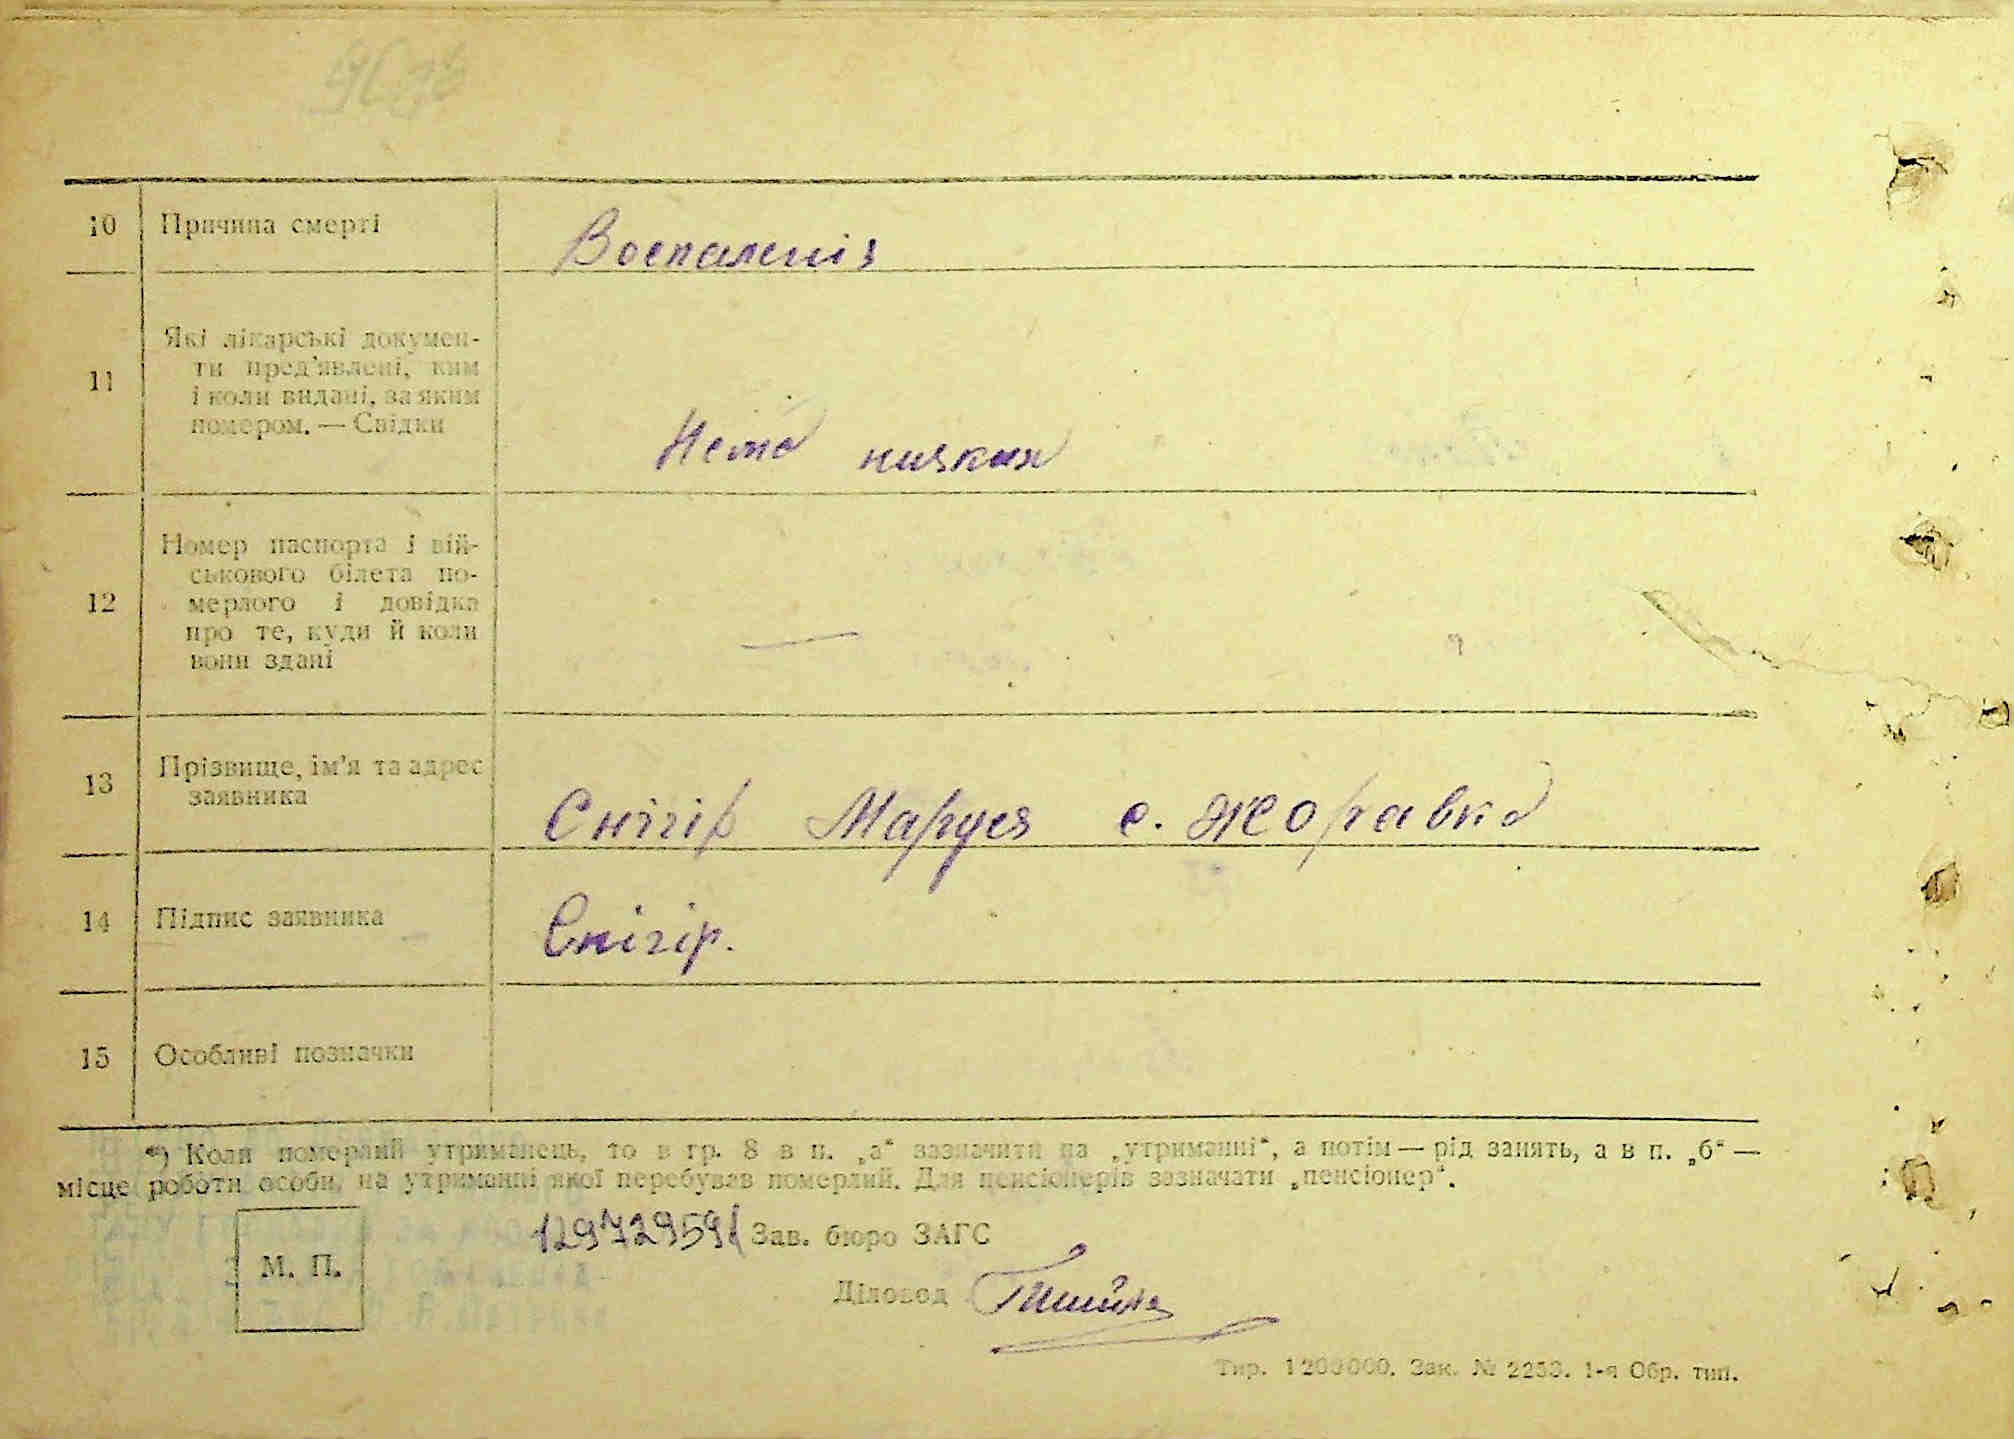 10 Причина смерті
Воспаленія
11 Які лікарські докумен-
ти пред'явлені, ким
і коли видані, за яким
номером. — Свідки
Нема нияких
12 Номер паспорта і вій-
ськового білета по-
мерлого і довідка
про те, куди й коли
вони здані
—
13 Прізвище, ім'я та адрес
заявника
Снігір Маруся с. Жоравка
14 Підпис заявника
Снігір.
15 Особливі позначки
*) Коли померлий утриманець, то в гр. 8 в п. „а“ зазначити на „утриманні“, а потім — рід занять, а в п. „б“ —
місце роботи особи, на утриманні якої перебував померлий. Для пенсіонерів зазначати „пенсіонер“.
М. П.
Зав. бюро ЗАГС
Діловод
Тир. 1200000. Зак. № 2253. 1-я Обр. тип.